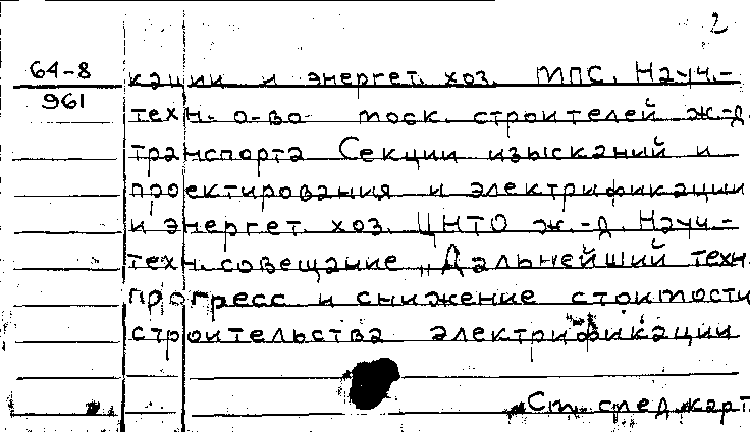 2
64-8
961
кации и энергет. хоз. МПС. Науч.-
техн. о-ва моск. строителей ж.-д.
транспорта Секции изысканий и
проектирования и электрификации
и энергет. хоз. ЦНТО ж.-д. Науч.-
техн. совещание „Дальнейший техн.
прогресс и снижение стоимости
строительства электрификации
См. след. карт.